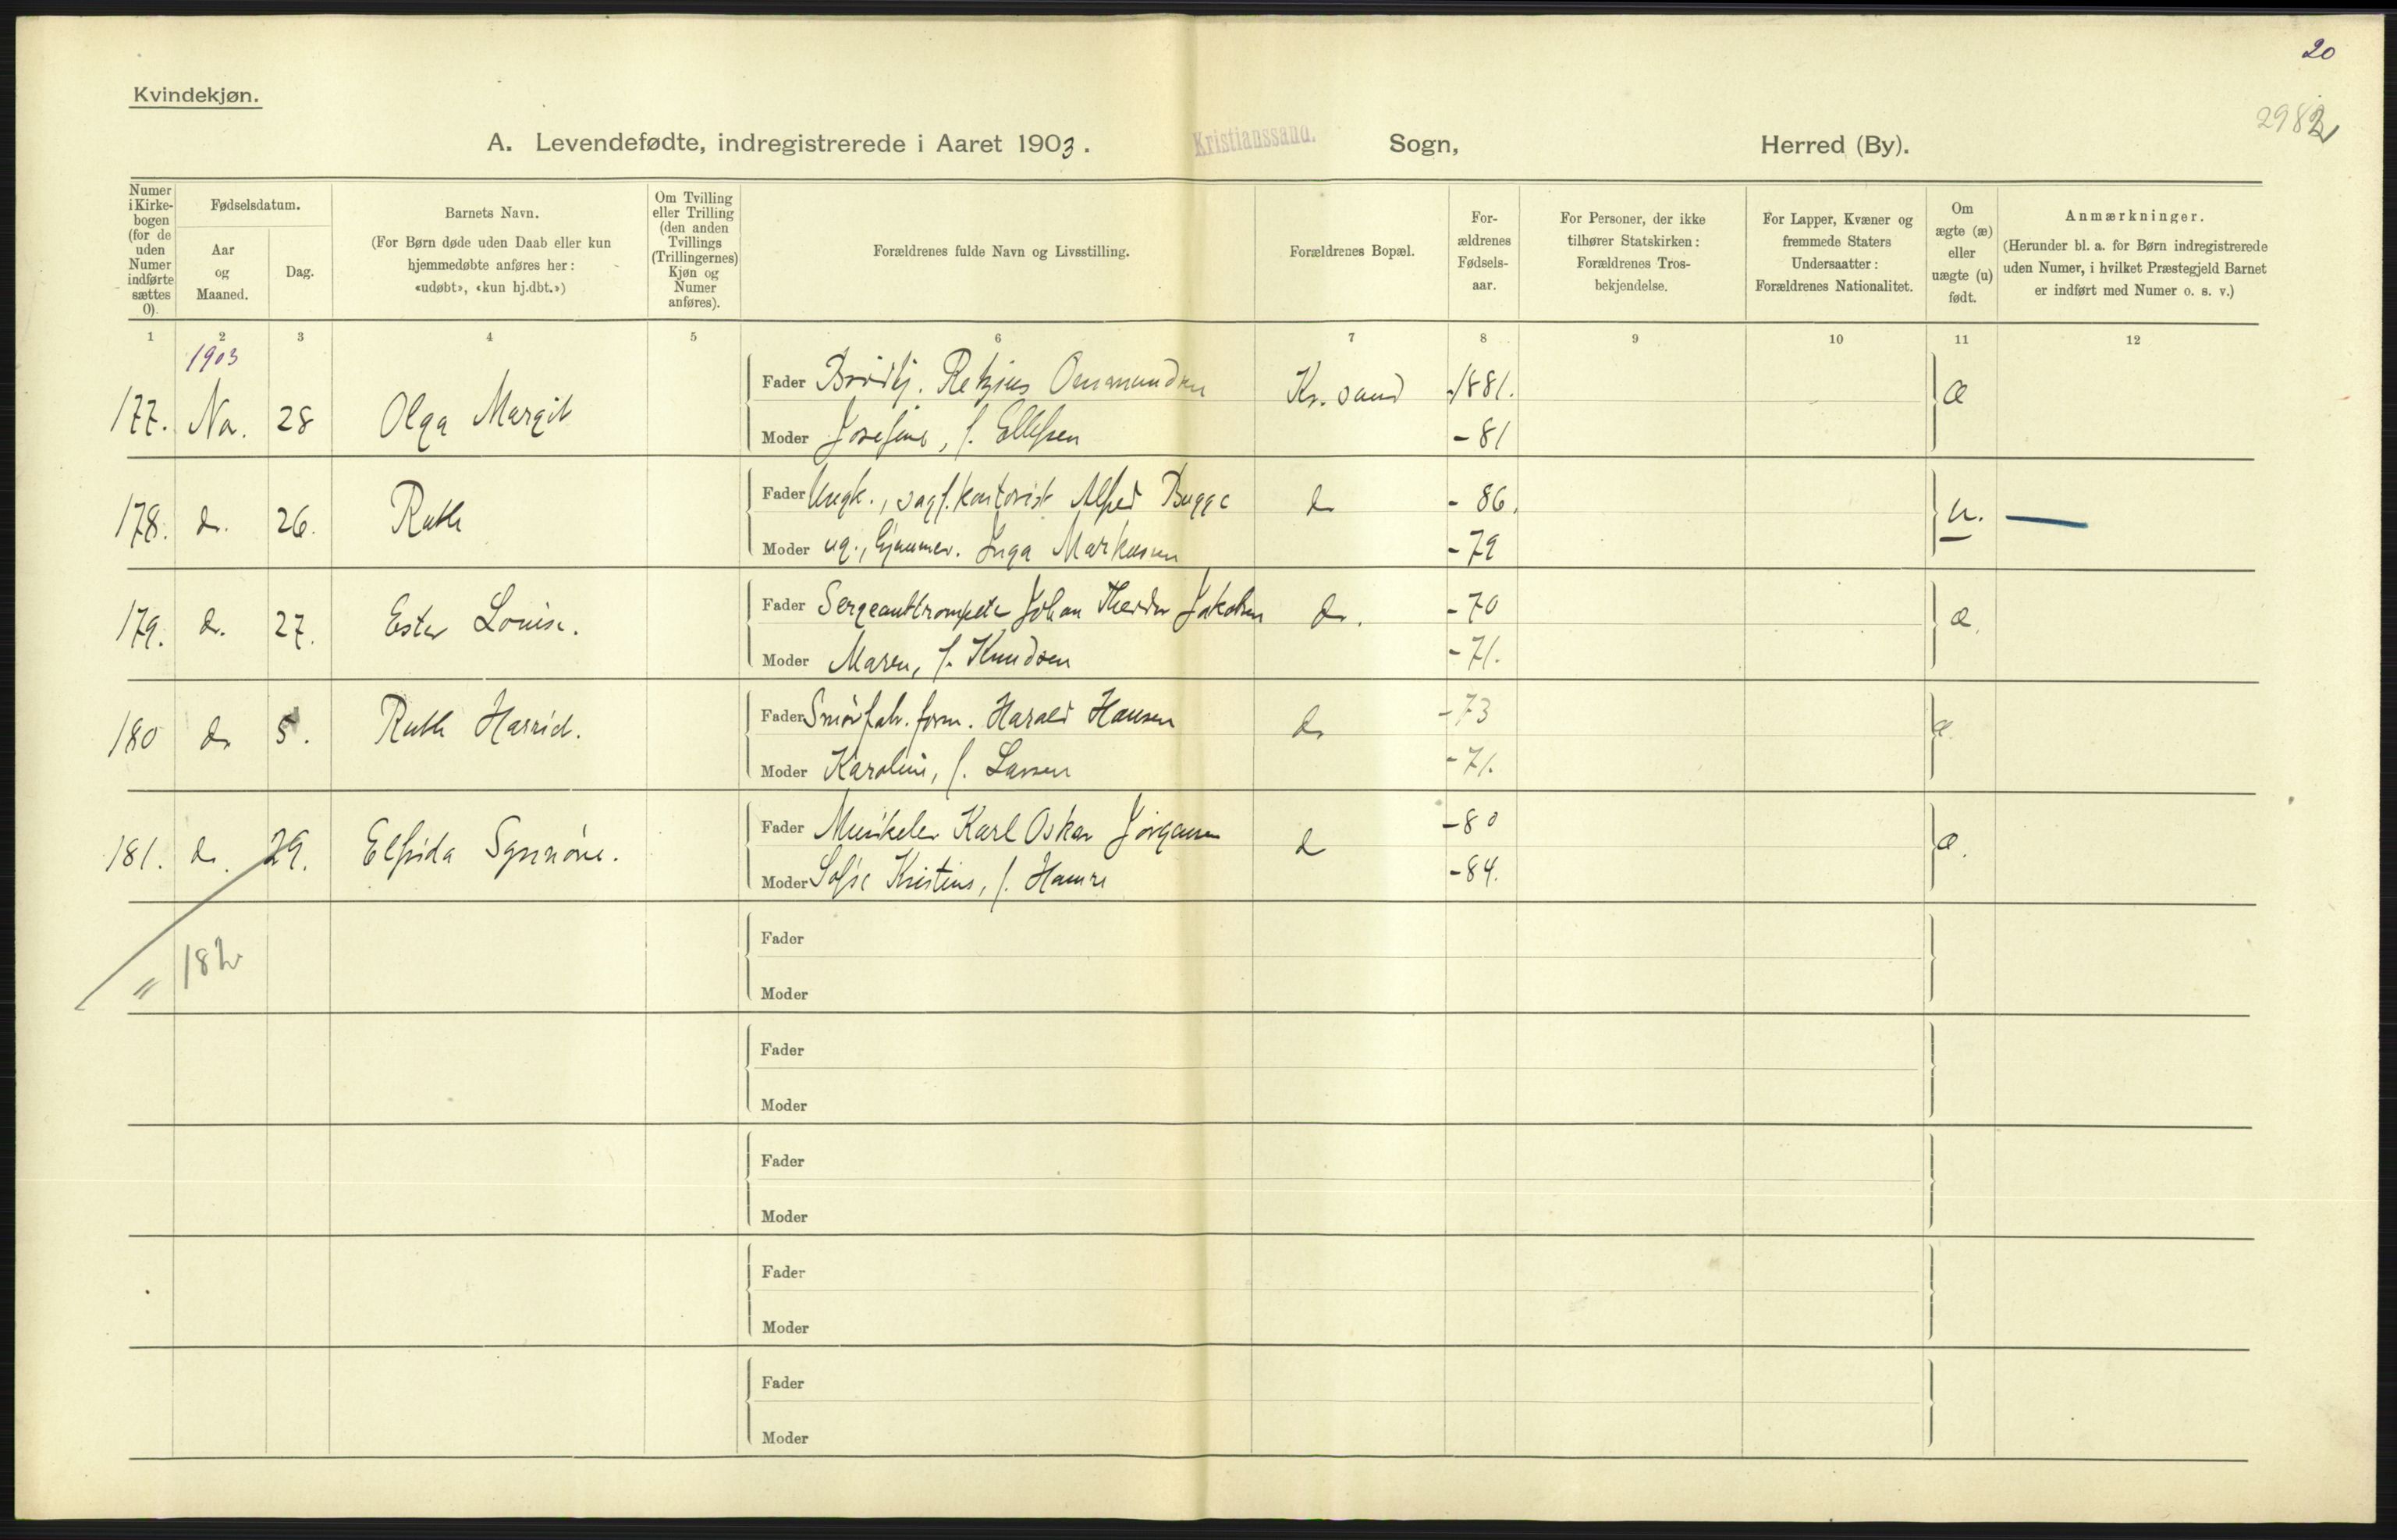 20
2982
Kvindekjøn.
A. Levendefødte, indregistrerede i Aaret 1903. Kristianssand. Sogn, Herred (By).
Numer i Kirkebogen (for de uden Numer indførte sættes 0).
Fødselsdatum.
Aar og Maaned.
Dag.
Barnets Navn.
(For Børn døde uden Daab eller kun
hjemmedøbte anføres her:
«udøbt», «kun hj.dbt.»)
Om Tvilling
eller Trilling
(den anden
Tvillings
(Trillingernes)
Kjøn og
Numer
anføres).
Forældrenes fulde Navn og Livsstilling.
Forældrenes Bopæl.
For-
ældrenes
Fødsels-
aar.
For Personer, der ikke
tilhører Statskirken:
Forældrenes Tros-
bekjendelse.
For Lapper, Kvæner og
fremmede Staters
Undersaatter:
Forældrenes Nationalitet.
Om
ægte (æ)
eller
uægte (u)
født.
Anmærkninger.
(Herunder bl. a. for Børn indregistrerede
uden Numer, i hvilket Præstegjeld Barnet
er indført med Numer o. s. v.)
1 2 3 4 5 6 7 8 9 10 11 12
1903
177. No. 28 Olga Margit Fader Ommundsen Kr.sand 1881. æ
Moder Josefine, f. Ellefsen - 81
178. do. 26. Ruth Fader Ungk., sagf.kontorist Alfred Bugge do - 86. u.
Moder ug., Inga Markusen - 79
179. do. 27. Ester Louise. Fader Sergeanttrompeter Johan Theodor Jakobsen do. - 70 æ.
Moder Maren, f. Knudsen - 71.
180 do 5. Ruth Harried. Fader Smørfab. form. Harald Hansen do - 73 æ.
Moder Karoline, f. Larsen - 71.
181. do. 29. Elfrida Synnøve. Fader Musikelev Karl Oskar Jørgensen do - 80 æ.
Moder Sofie Kristine, f. Hamre - 84.
" 182
Fader
Moder
Fader
Moder
Fader
Moder
Fader
Moder
Fader
Moder